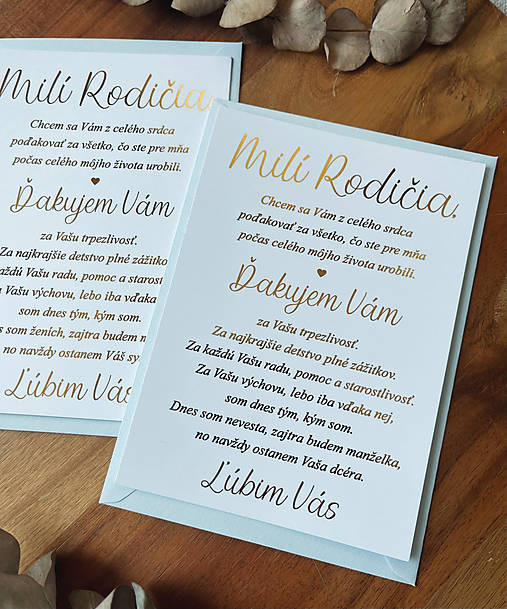 Milí Rodičia
Chcem sa Vám z celého srdca
poďakovať za všetko, čo ste pre mňa
počas celého môjho života urobili.
Ďakujem Vám
za Vašu trpezlivosť.
Za najkrajšie detstvo plné zážitko
aždú Vašu radu, pomoc a starostl
a Vašu výchovu, lebo iba vďaka
som dnes tým, kým som.
s som ženích, zajtra budem m
no navždy ostanem Váš sy
Ľúbim Vás
Milí Rodičia.
Chcem sa Vám z celého srdca
poďakovať za všetko, čo ste pre mňa
počas celého môjho života urobili.
Ďakujem Vám
za Vašu trpezlivosť.
Za najkrajšie detstvo plné zážitkov.
Za každú Vašu radu, pomoc a starostlivosť.
Za Vašu výchovu, lebo iba vďaka nej,
som dnes tým, kým som.
Dnes som nevesta, zajtra budem manželka,
no navždy ostanem Vaša dcéra.
Ľúbim Vás